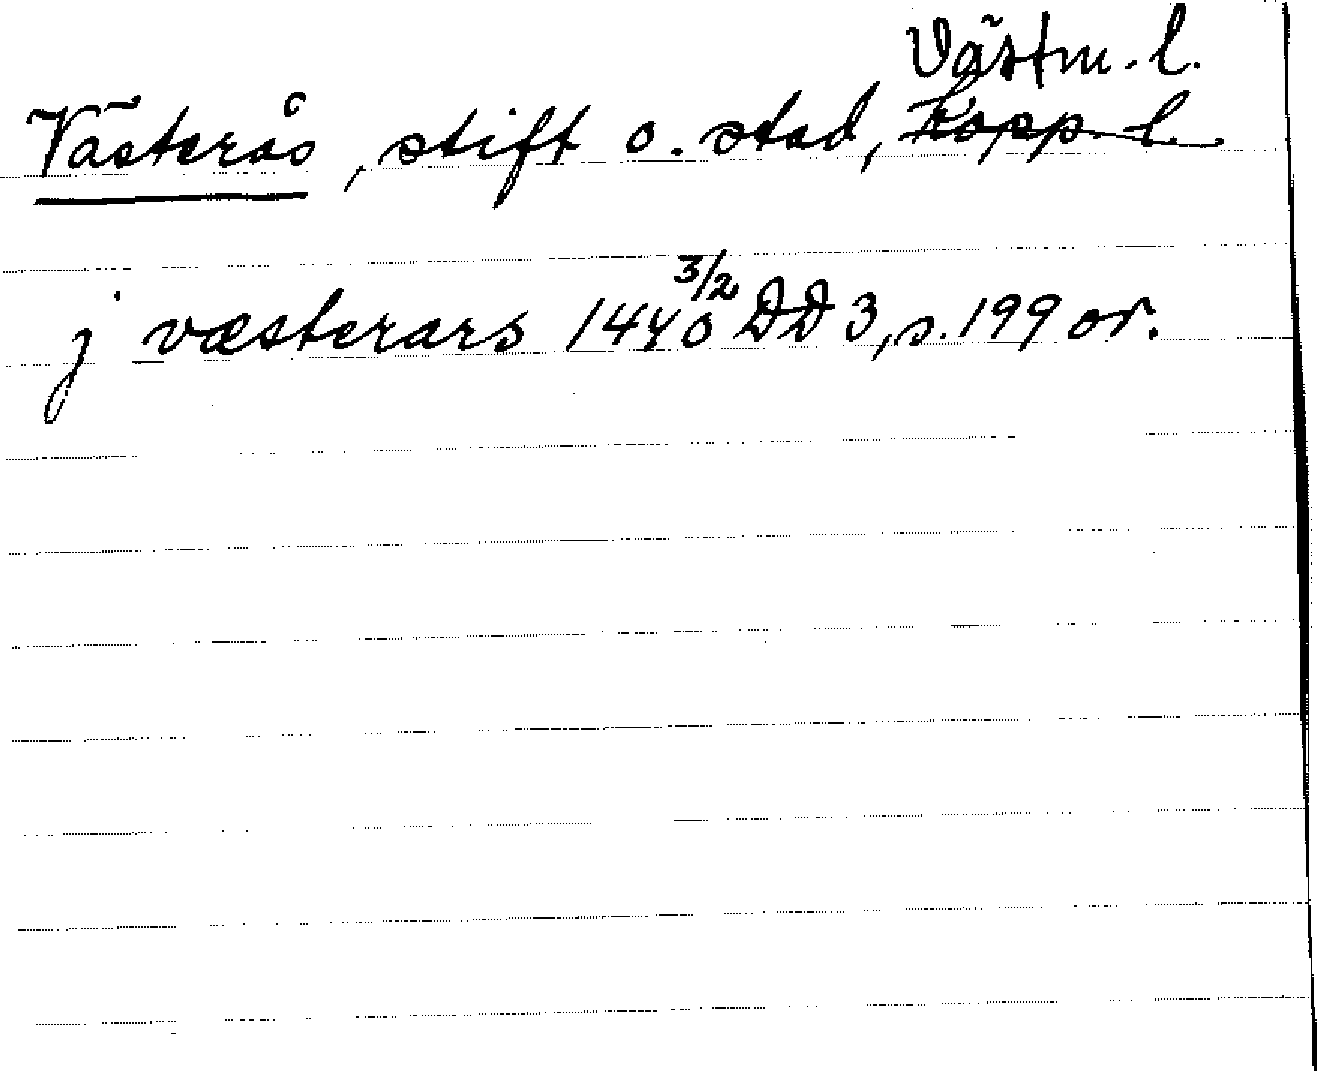 Västm. l.
Västerås, stift o. stad, Kopp. l.
j væsterars 1440 3/2 DD 3, s. 199 or.